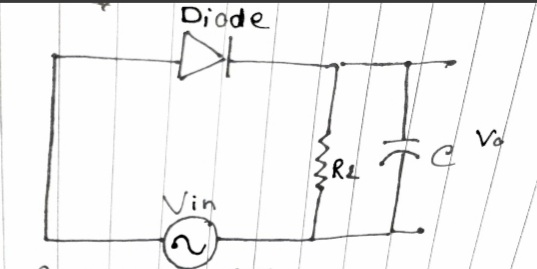 Diode
RL
C
Vo
Vin